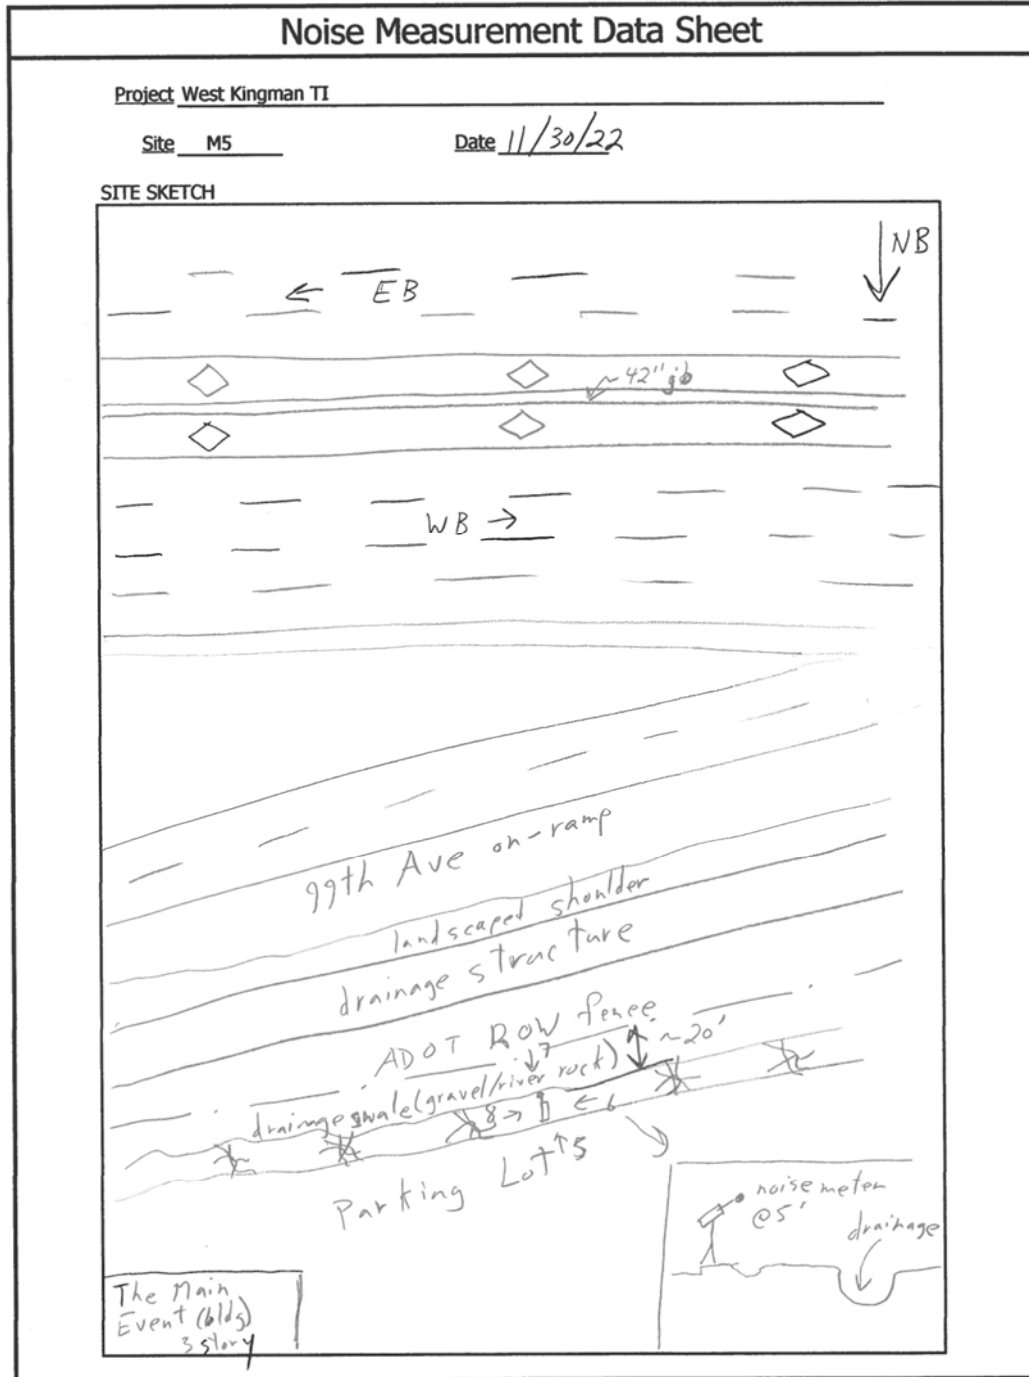 Noise Measurement Data Sheet
Project West Kingman TI
Site M5 Date 11/30/22
SITE SKETCH
NB
← EB
~42" jb
WB →
99th Ave on-ramp
landscaped shoulder
drainage structure
ADOT ROW fence
~20'
↓7
drainage swale (gravel/river rock)
8 → ← 6
↑5
Parking Lot
noise meter
@5'
drainage
The Main
Event (bldg)
3 story